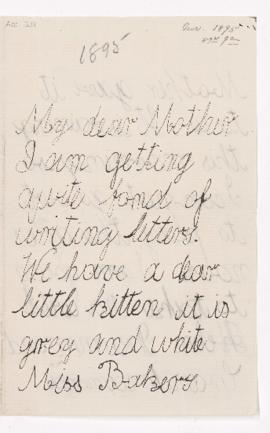 1895
My dear Mother
I am getting
quite fond of
writing letters.
We have a dear
little kitten it is
grey and white
Miss Bakers